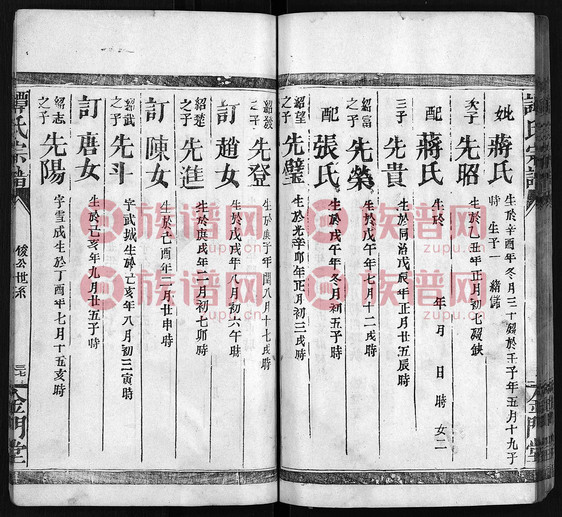 妣蔣氏 生於辛酉年冬月三十 歿於壬子年五月十九子
時 生子一 緒儲
次子 先昭 生於乙丑年正月初七歿缺
配 蔣氏 生於 年 月 日 時 女二
三子 先貴 生於同治戊辰年正月廿五辰時
紹富之子 先榮 生於戊午年七月十二戌時
配 張氏 生於戊午年冬月初五子時
紹望之子 先璧 生於光 辛卯年正月初三戌時
之子 先登 生於庚子年閏八月十七戌時
訂趙女 生於戊戌年八月初六午時
紹楚之子 先進 生於庚戌年二月初七卯時
訂陳女 生於己酉年三月廿申時
紹武之子 先斗 字武城生於辛亥年八月初三寅時
訂唐女 生於己亥年九月廿五子時
紹志之子 先陽 字雪成生於丁酉年七月十五亥時
譚氏宗譜
俊公世系
三七
金門堂
族谱网
zupu.cn
族谱网
zupu.cn
族谱网
zupu.cn
族谱网
zupu.cn